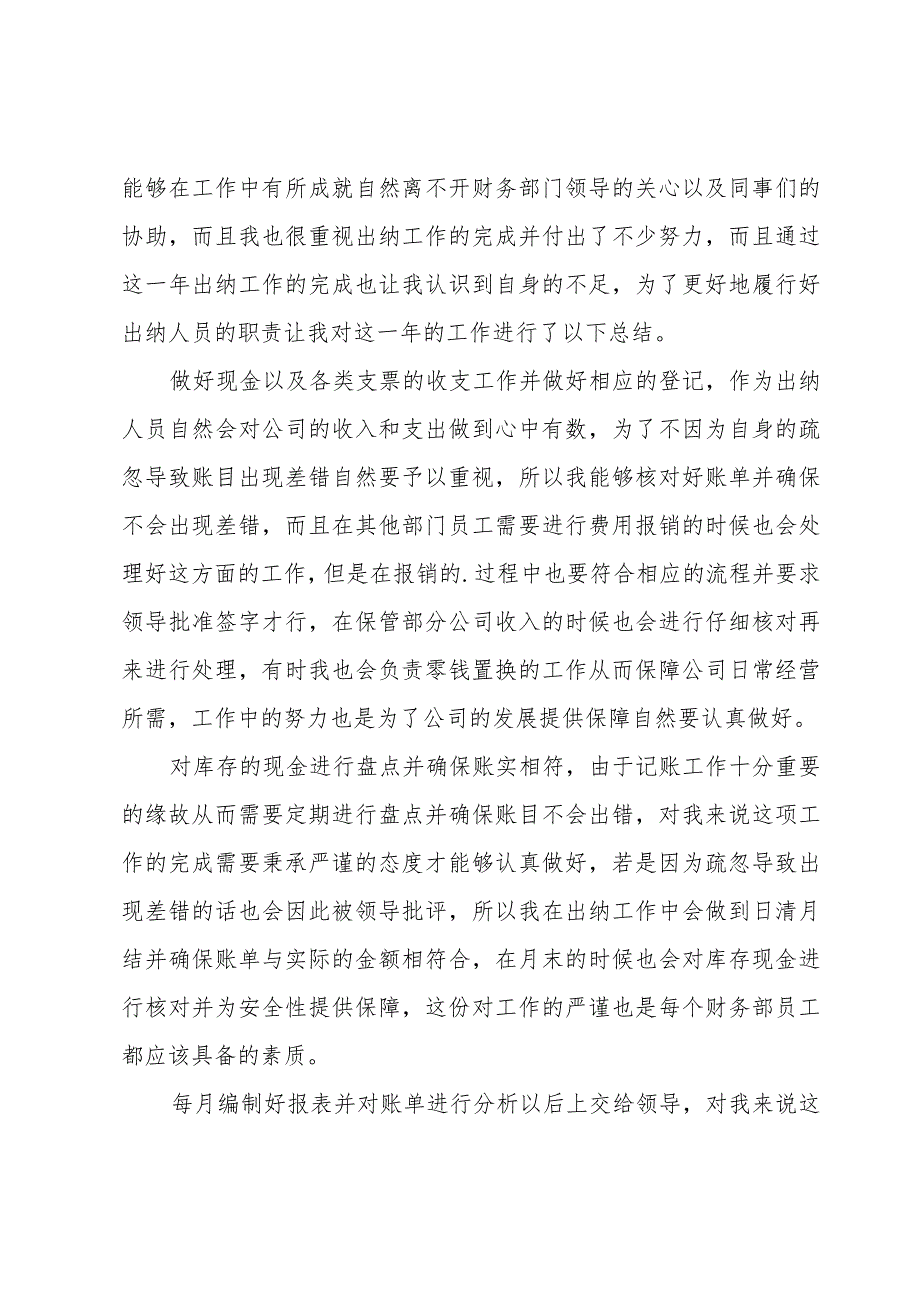 能够在工作中有所成就自然离不开财务部门领导的关心以及同事们的
协助，而且我也很重视出纳工作的完成并付出了不少努力，而且通过
这一年出纳工作的完成也让我认识到自身的不足，为了更好地履行好
出纳人员的职责让我对这一年的工作进行了以下总结。
做好现金以及各类支票的收支工作并做好相应的登记，作为出纳
人员自然会对公司的收入和支出做到心中有数，为了不因为自身的疏
忽导致账目出现差错自然要予以重视，所以我能够核对好账单并确保
不会出现差错，而且在其他部门员工需要进行费用报销的时候也会处
理好这方面的工作，但是在报销的.过程中也要符合相应的流程并要求
领导批准签字才行，在保管部分公司收入的时候也会进行仔细核对再
来进行处理，有时我也会负责零钱置换的工作从而保障公司日常经营
所需，工作中的努力也是为了公司的发展提供保障自然要认真做好。
对库存的现金进行盘点并确保账实相符，由于记账工作十分重要
的缘故从而需要定期进行盘点并确保账目不会出错，对我来说这项工
作的完成需要秉承严谨的态度才能够认真做好，若是因为疏忽导致出
现差错的话也会因此被领导批评，所以我在出纳工作中会做到日清月
结并确保账单与实际的金额相符合，在月末的时候也会对库存现金进
行核对并为安全性提供保障，这份对工作的严谨也是每个财务部员工
都应该具备的素质。
每月编制好报表并对账单进行分析以后上交给领导，对我来说这